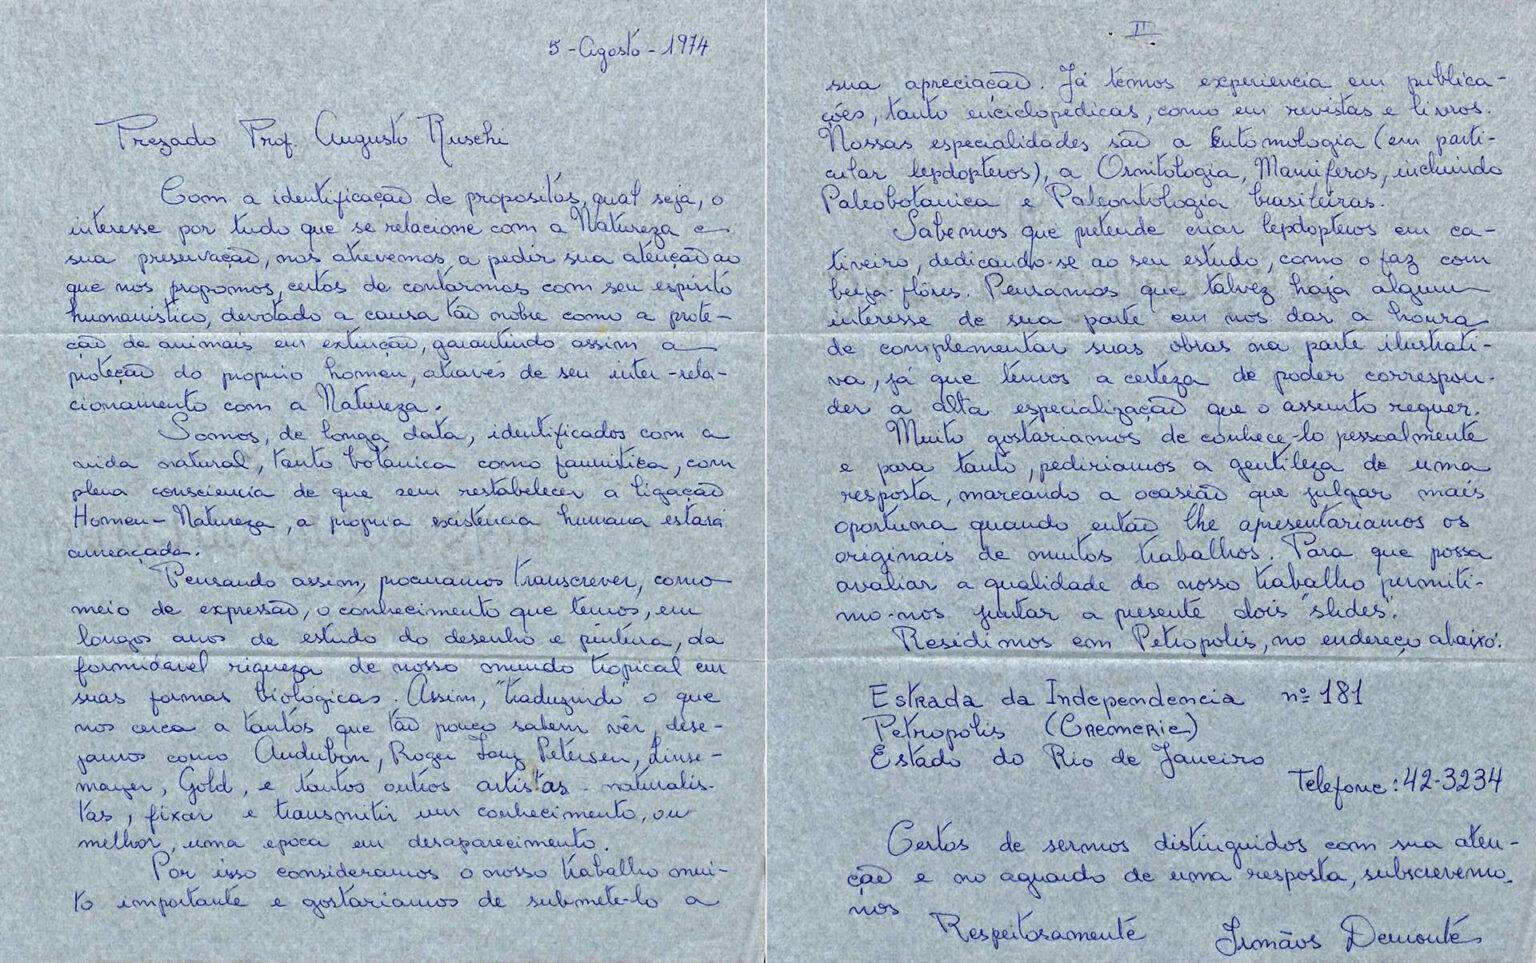 5 - Agosto - 1974
Prezado Prof. Augusto Ruschi
Com a identificação de propositos, qual seja, o
interesse por tudo que se relacione com a Natureza e
sua preservação, nos atrevemos a pedir sua atenção ao
que nos propomos, certos de contarmos com seu espirito
humanistico, devotado a causa tão nobre como a prote-
ção de animais em extinção, garantindo assim a
proteção do proprio homem, através de seu inter-rela-
cionamento com a Natureza.
Somos, de longa data, identificados com a
vida natural, tanto botanica como faunistica, com
plena consciencia de que sem restabelecer a ligação
Homem-Natureza, a propria existência humana estará
ameaçada.
Pensando assim, procuramos transcrever, como
meio de expressão, o conhecimento que temos, em
longos anos de estudo do desenho e pintura, da
formidavel riqueza de nosso mundo tropical em
suas formas biológicas. Assim, "traduzindo" o que
nos cerca a tantos que tão pouco sabem vêr, dese-
jamos como Audubon, Roger Tory Petersen, Linse-
mayer, Gold, e tantos outros artistas-naturalis-
tas, fixar e transmitir um conhecimento, ou
melhor, uma epoca em desaparecimento.
Por isso consideramos o nosso trabalho mui-
to importante e gostariamos de submete-lo a
II
sua apreciação. Já temos experiencia em publica-
ções, tanto enciclopédicas, como em revistas e livros.
Nossas especialidades são a Entomologia (em parti-
cular lepdopteros), a Ornitologia, Mamiferos, incluindo
Paleobotanica e Paleontologia brasileiras.
Sabemos que pretende criar lepdopteros em ca-
tiveiro, dedicando-se ao seu estudo, como o faz com
beija-flôres. Pensamos que talvez haja algum
interesse de sua parte em nos dar a honra
de complementar suas obras na parte ilustrati-
va, já que temos a certeza de poder correspon-
der a alta especialização que o assunto requer.
Muito gostariamos de conhece-lo pessoalmente
e para tanto, pediriamos a gentileza de uma
resposta, marcando a ocasião que julgar mais
oportuna quando então lhe apresentariamos os
originais de muitos trabalhos. Para que possa
avaliar a qualidade do nosso trabalho permiti-
mo-nos juntar a presente dois "slides".
Residimos em Petropolis, no endereço abaixo:
Estrada da Independencia nº 181
Petropolis (CREMERIE)
Estado do Rio de Janeiro
Telefone: 42-3234
Certos de sermos distinguidos com sua aten-
ção e no aguardo de uma resposta, subscrevemo-
nos
Respeitosamente
Irmãos Demonte